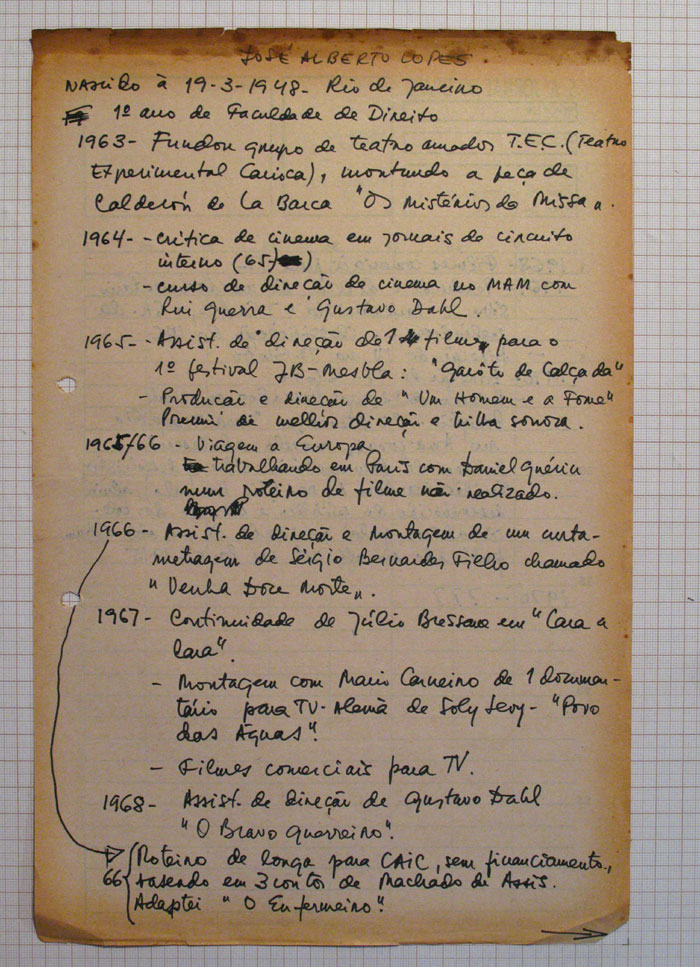 JOSÉ ALBERTO LOPES
NASCIDO à 19-3-1948 - Rio de Janeiro
1º ano de Faculdade de Direito
1963 - Fundou grupo de teatro amador T.E.C. (Teatro
Experimental Carioca), montando a peça de
Calderón de La Barca "Os Mistérios da Missa".
1964 - - crítica de cinema em jornais de circuito
interno (65/ )
- curso de direção de cinema no MAM com
Rui Guerra e Gustavo Dahl.
1965 - - Assist. de direção de 1 filme para o
1º festival JB-Mesbla: "Garôto de Calçada"
- Produção e direção de "Um Homem e a Fome"
Premiu de melhor direção e trilha sonora.
1965/66 - Viagem a Europa
trabalhando em Paris com Daniel Guérin
num roteiro de filme não realizado.
1966 - Assist. de direção e montagem de um curta-
metragem de Sérgio Bernardes Filho chamado
"Venha Doce Morte".
1967 - Continuidade de Júlio Bressane em "Cara a
Cara".
- Montagem com Mario Carneiro de 1 documen-
tário para TV-Alemã de Soly Levy - "Povo
das Águas".
- Filmes comerciais para TV.
1968 - Assist. de direção de Gustavo Dahl
"O Bravo Guerreiro".
66 { Roteiro de longa para CAIC, sem financiamento,
baseado em 3 contos de Machado de Assis.
Adaptei "O Enfermeiro".